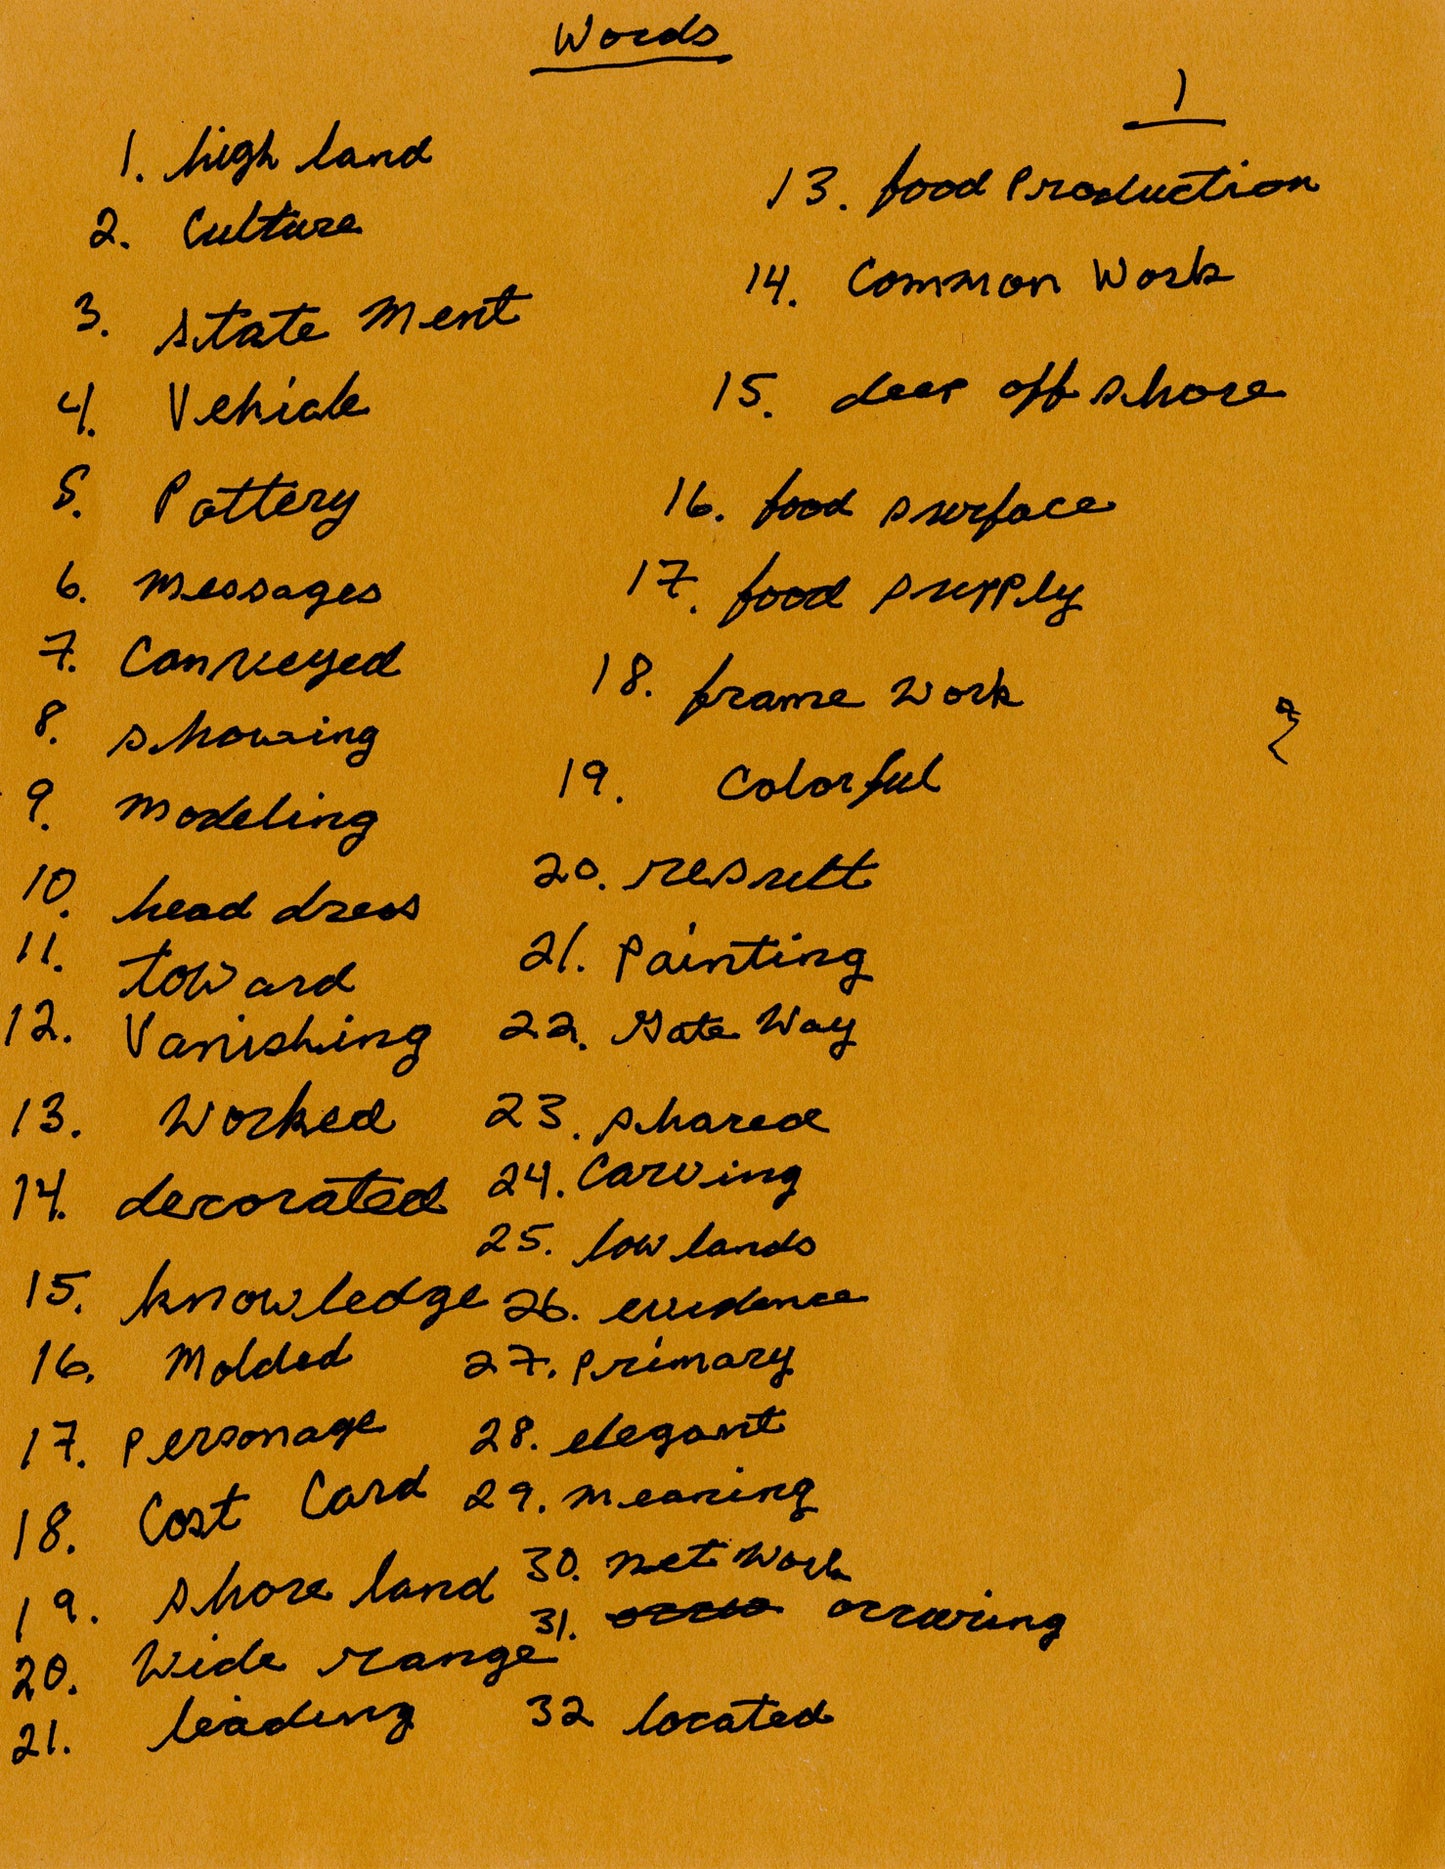 Words
1
1. high land
2. Culture
3. state Ment
4. Vehicle
5. Pottery
6. Messages
7. Conveyed
8. showing
9. Modeling
10. head dress
11. toward
12. Vanishing
13. Worked
14. decorated
15. knowledge
16. Molded
17. Personage
18. Cost Card
19. shore land
20. Wide range
21. leading
13. food Production
14. Common Work
15. deep off shore
16. food surface
17. food supply
18. frame work
19. Colorful
20. result
21. Painting
22. Gate Way
23. shared
24. Carving
25. low lands
26. evidence
27. Primary
28. elegant
29. meaning
30. net Work
31. occuring
32 located